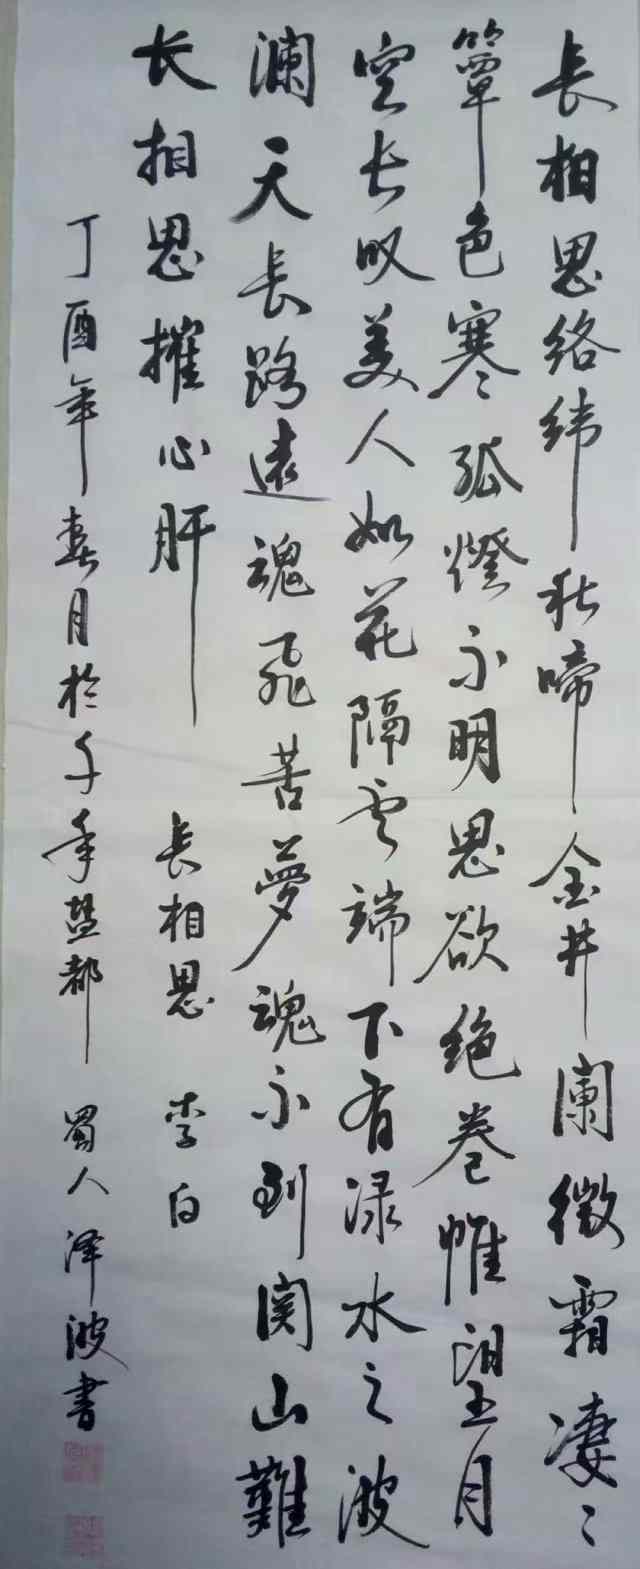 長相思络纬秋啼金井阑微霜凄〻
簟色寒孤燈不明思欲绝卷帷望月
空长叹美人如花隔云端下有渌水之波
澜天長路遠魂飛苦夢魂不到関山難
长相思摧心肝 長相思 李白
丁酉年春月於千年盐都 蜀人泽波書